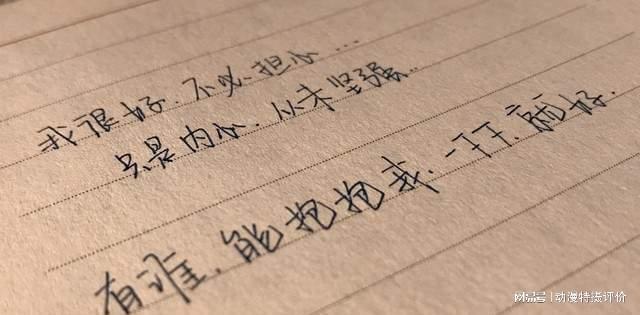 我很好.不必担心...
只是内心.从未坚强..
有谁.能抱抱我.一下下.就好.
搜狐号@动漫特摄评价